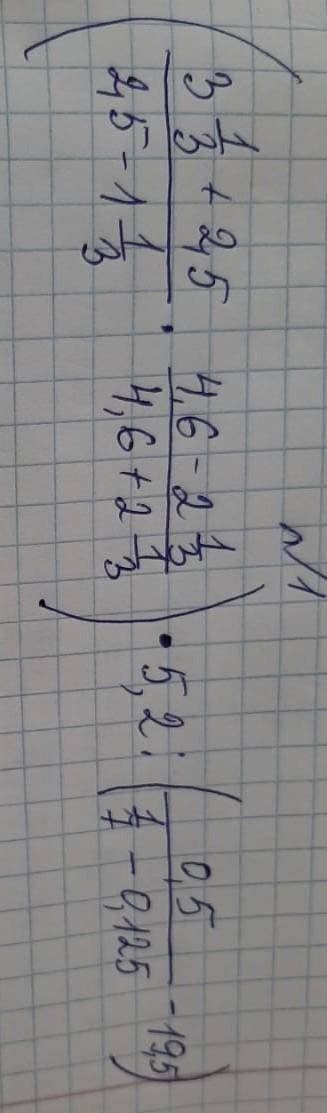 №1
( (3 1/3 + 2,5) / (2,5 - 1 1/3) · (4,6 - 2 1/3) / (4,6 + 2 1/3) ) · 5,2 : ( 0,5 / (1/7 - 0,125) - 19,5 )